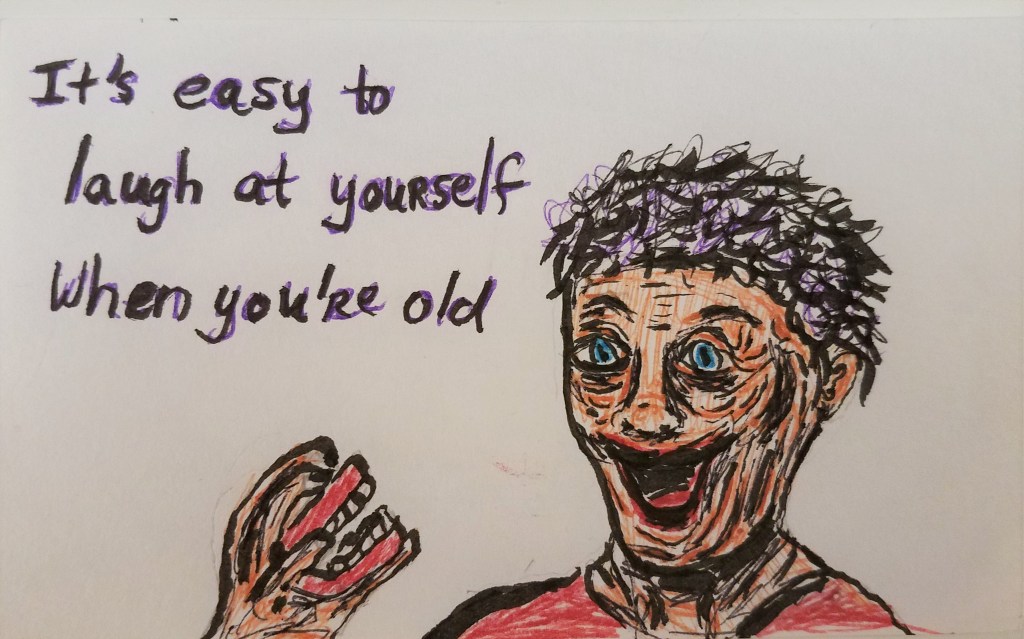 It's easy to
laugh at yourself
When you're old